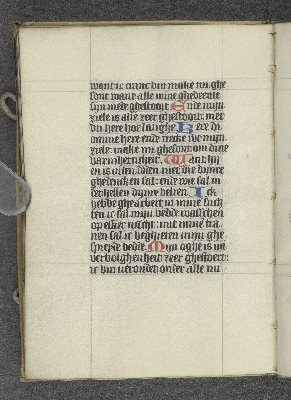 want ic cranc bin make mi ghe
sont want alle mine ghebeente
syn mede ghestoert Ende mijn
ziele is alte zeer ghestoert mer
du here hoe langhe Here di
omme here ende trecke wt mijn
ziele make mi ghesont om dine
barmherticheit Want hij
en is niet inden doot die dijnre
ghedencken sal ende wie sal in
der hellen dijnre belien Ic
hebbe ghearbeit in mine such
ten ic sal mijn bedde wasschen
op elker nacht mit mine tra
nen sal ic beghieten mijn ghe
spreyde bedde Mijn oghe is uut
verbolghenheit zeer ghestoert
ic bin veroudet onder alle mi